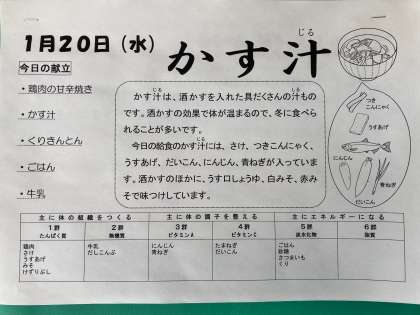 1月20日(水)
かす汁
じる
今日の献立
・鶏肉の甘辛焼き
・かす汁
・くりきんとん
・ごはん
・牛乳
かす汁は、酒かすを入れた具だくさんの汁もの
です。酒かすの効果で体が温まるので、冬に食べら
れることが多いです。
今日の給食のかす汁には、さけ、つきこんにゃく、
うすあげ、だいこん、にんじん、青ねぎが入っていま
す。酒かすのほかに、うす口しょうゆ、白みそ、赤み
そで味つけしています。
つき
こんにゃく
うすあげ
さけ
にんじん
青ねぎ
だいこん
主に体の組織をつくる 主に体の調子を整える 主にエネルギーになる
1群 2群 3群 4群 5群 6群
たんぱく質 無機質 ビタミンA ビタミンC 炭水化物 脂質
鶏肉 牛乳 にんじん たまねぎ ごはん
さけ だしこんぶ 青ねぎ だいこん 砂糖
うすあげ さつまいも
みそ くり
けずりぶし